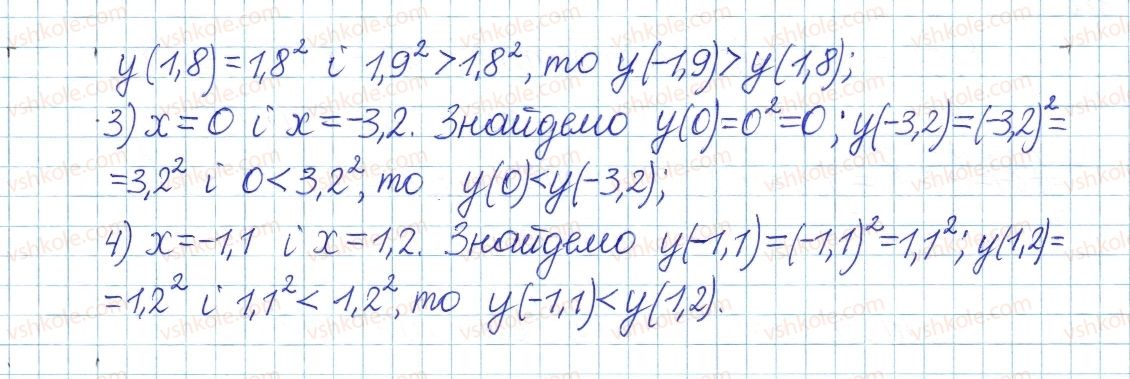 y(1,8)=1,8² і 1,9²>1,8², то y(-1,9)>y(1,8);
3) x=0 і x=-3,2. Знайдемо y(0)=0²=0; y(-3,2)=(-3,2)²=
=3,2² і 0<3,2², то y(0)<y(-3,2);
4) x=-1,1 і x=1,2. Знайдемо y(-1,1)=(-1,1)²=1,1²; y(1,2)=
=1,2² і 1,1²<1,2², то y(-1,1)<y(1,2).